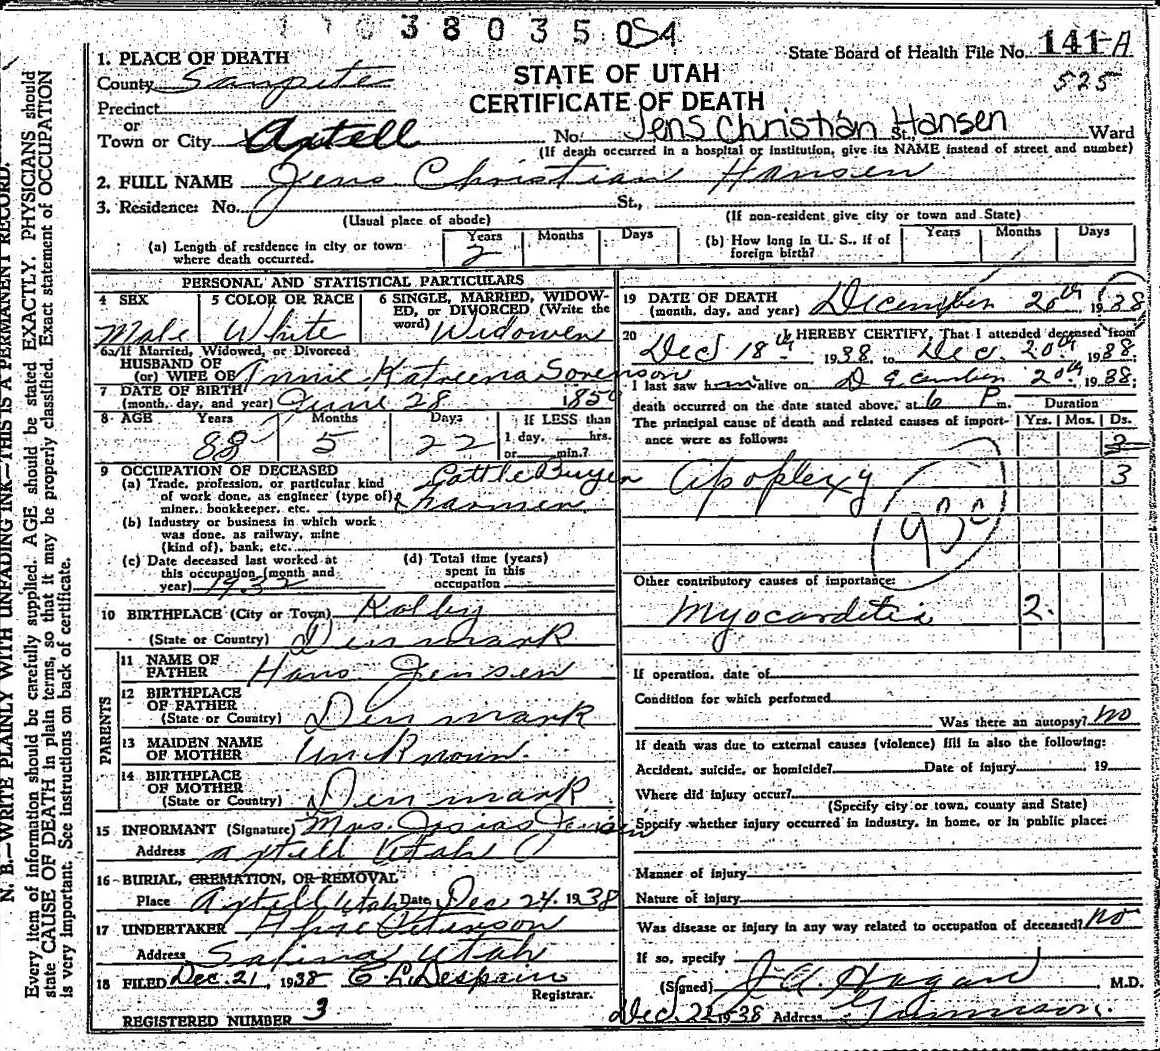 38035 054
State Board of Health File No. 141-A
525
1. PLACE OF DEATH
County Sanpete
STATE OF UTAH
CERTIFICATE OF DEATH
Precinct
or
Town or City Axtell No. Jens Christian Hansen St., Ward
(If death occurred in a hospital or institution, give its NAME instead of street and number)
2. FULL NAME Jens Christian Hansen
3. Residence: No. St.,
(Usual place of abode) (If non-resident give city or town and State)
(a) Length of residence in city or town where death occurred. Years 2 Months Days
(b) How long in U. S., if of foreign birth? Years Months Days
PERSONAL AND STATISTICAL PARTICULARS
4 SEX Male
5 COLOR OR RACE White
6 SINGLE, MARRIED, WIDOWED, OR DIVORCED (Write the word) Widower
6a If Married, Widowed, or Divorced
HUSBAND OF
(or) WIFE OF Annie Katreena Sorenson
7 DATE OF BIRTH
(month, day, and year) June 28 1850
8 AGE Years 88 Months 5 Days 22 If LESS than
1 day, hrs.
or min.?
9 OCCUPATION OF DECEASED
(a) Trade, profession, or particular kind
of work done, as engineer (type of)
miner, bookkeeper, etc. Cattle Buyer
& Farmer
(b) Industry or business in which work
was done, as railway, mine
(kind of), bank, etc.
(c) Date deceased last worked at
this occupation (month and
year) 1932
(d) Total time (years)
spent in this
occupation
10 BIRTHPLACE (City or Town) Kolby
(State or Country) Denmark
PARENTS
11 NAME OF
FATHER Hans Jensen
12 BIRTHPLACE
OF FATHER
(State or Country) Denmark
13 MAIDEN NAME
OF MOTHER Unknown
14 BIRTHPLACE
OF MOTHER
(State or Country) Denmark
15 INFORMANT (Signature) Mrs. Josias Jensen
Address Axtell Utah
16-BURIAL, CREMATION, OR REMOVAL
Place Axtell Utah Date Dec 24. 1938
17 UNDERTAKER
Address Salina Utah
18 FILED Dec. 21, 1938 C. L. Despain
Registrar.
REGISTERED NUMBER 3
19 DATE OF DEATH
(month, day, and year) December 20th 1938
20 I HEREBY CERTIFY, That I attended deceased from
Dec 18th 1938, to Dec. 20th 1938;
I last saw him alive on December 20th 1938;
death occurred on the date stated above, at 6 P m.
Duration
The principal cause of death and related causes of importance were as follows: Yrs. Mos. Ds.
Apoplexy 3
93c
Other contributory causes of importance:
Myocarditis 2.
If operation, date of
Condition for which performed
Was there an autopsy? no
If death was due to external causes (violence) fill in also the following:
Accident, suicide, or homicide? Date of injury 19
Where did injury occur?
(Specify city or town, county and State)
Specify whether injury occurred in industry, in home, or in public place:
Manner of injury
Nature of injury
Was disease or injury in any way related to occupation of deceased? no
If so, specify
(Signed) J. A. Hagan M.D.
Dec. 22 1938 Address Gunnison.
N. B.—WRITE PLAINLY WITH UNFADING INK—THIS IS A PERMANENT RECORD.
Every item of information should be carefully supplied. AGE should be stated EXACTLY. PHYSICIANS should
state CAUSE OF DEATH in plain terms, so that it may be properly classified. Exact statement of OCCUPATION
is very important. See instructions on back of certificate.